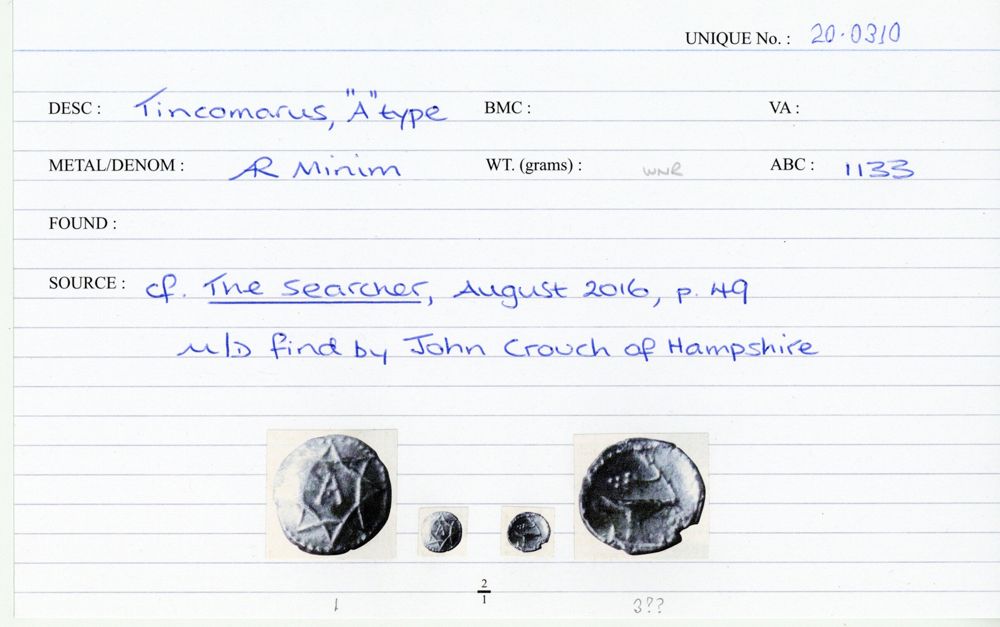 UNIQUE No. : 20.0310
DESC : Tincomarus, "A" type BMC : VA :
METAL/DENOM : AR Minim WT. (grams) : WNR ABC : 1133
FOUND :
SOURCE : cf. The Searcher, August 2016, p. 49
M/D find by John Crouch of Hampshire
A A
2
1
1 3??